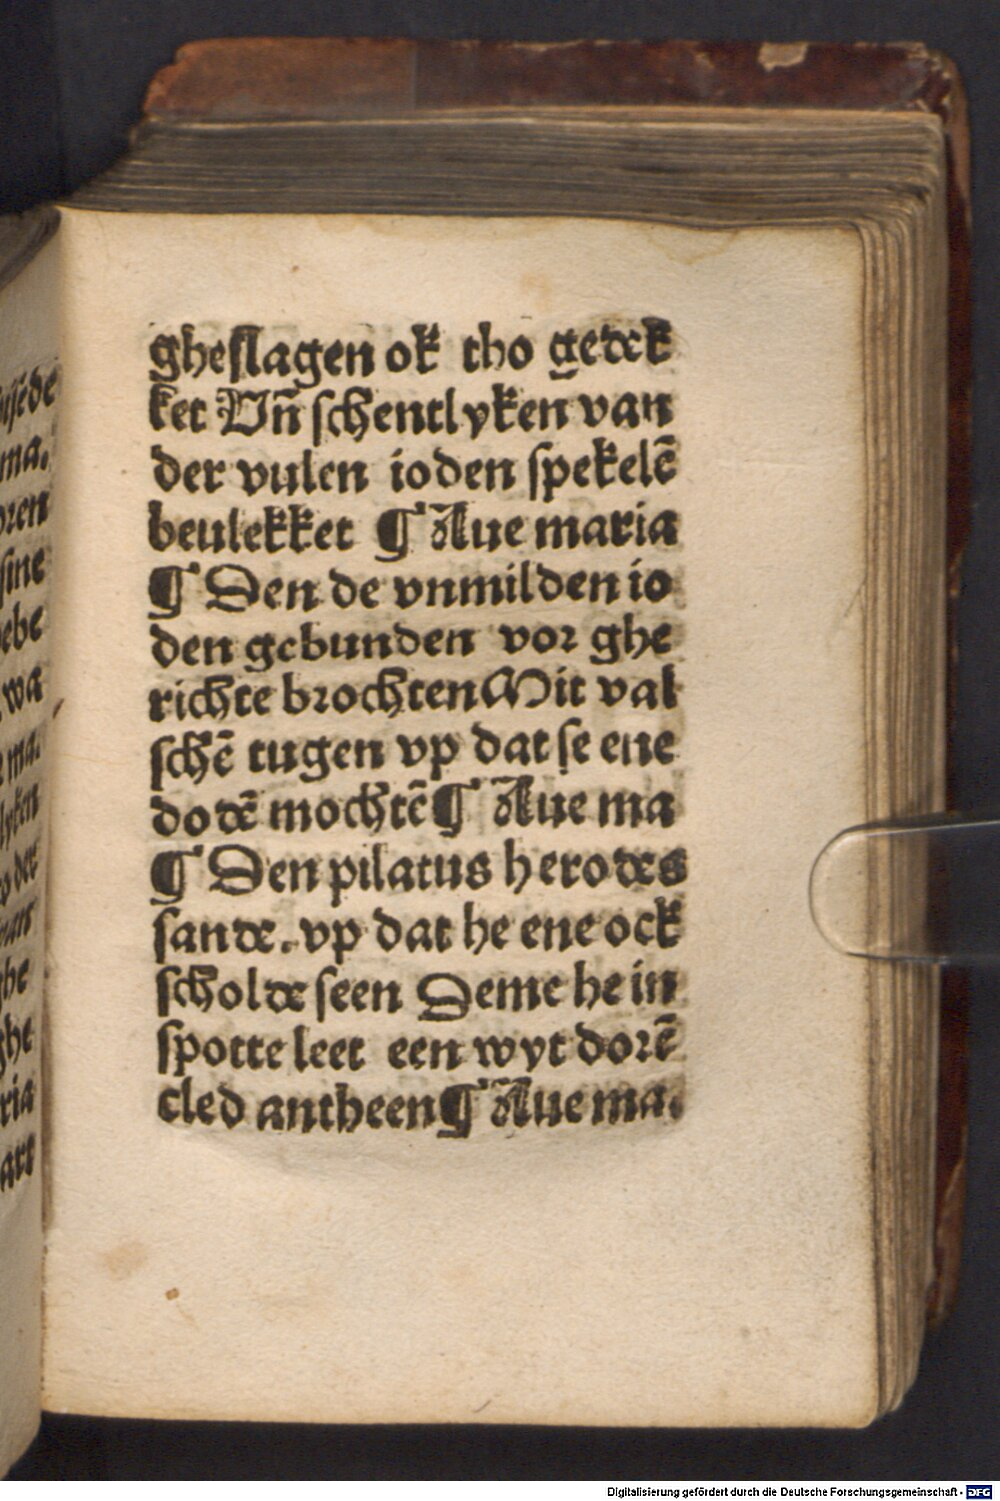 gheslagen ok tho gedek
ket Vn̄ schentlyken van
der vulen ioden spekelē
beulekket ¶ Aue maria
¶ Den de vnmilden io
den gebunden vor ghe
richte brochten Mit val
schē tugen vp dat se ene
dodē mochtē ¶ Aue ma
¶ Den pilatus herodes
sande. vp dat he ene ock
scholde seen Deme he in
spotte leet een wyt dorē
cled antheen ¶ Aue ma.
ma.
sine
wa
ma.
lyken
der
ghe
ghe
ria
Digitalisierung gefördert durch die Deutsche Forschungsgemeinschaft - DFG